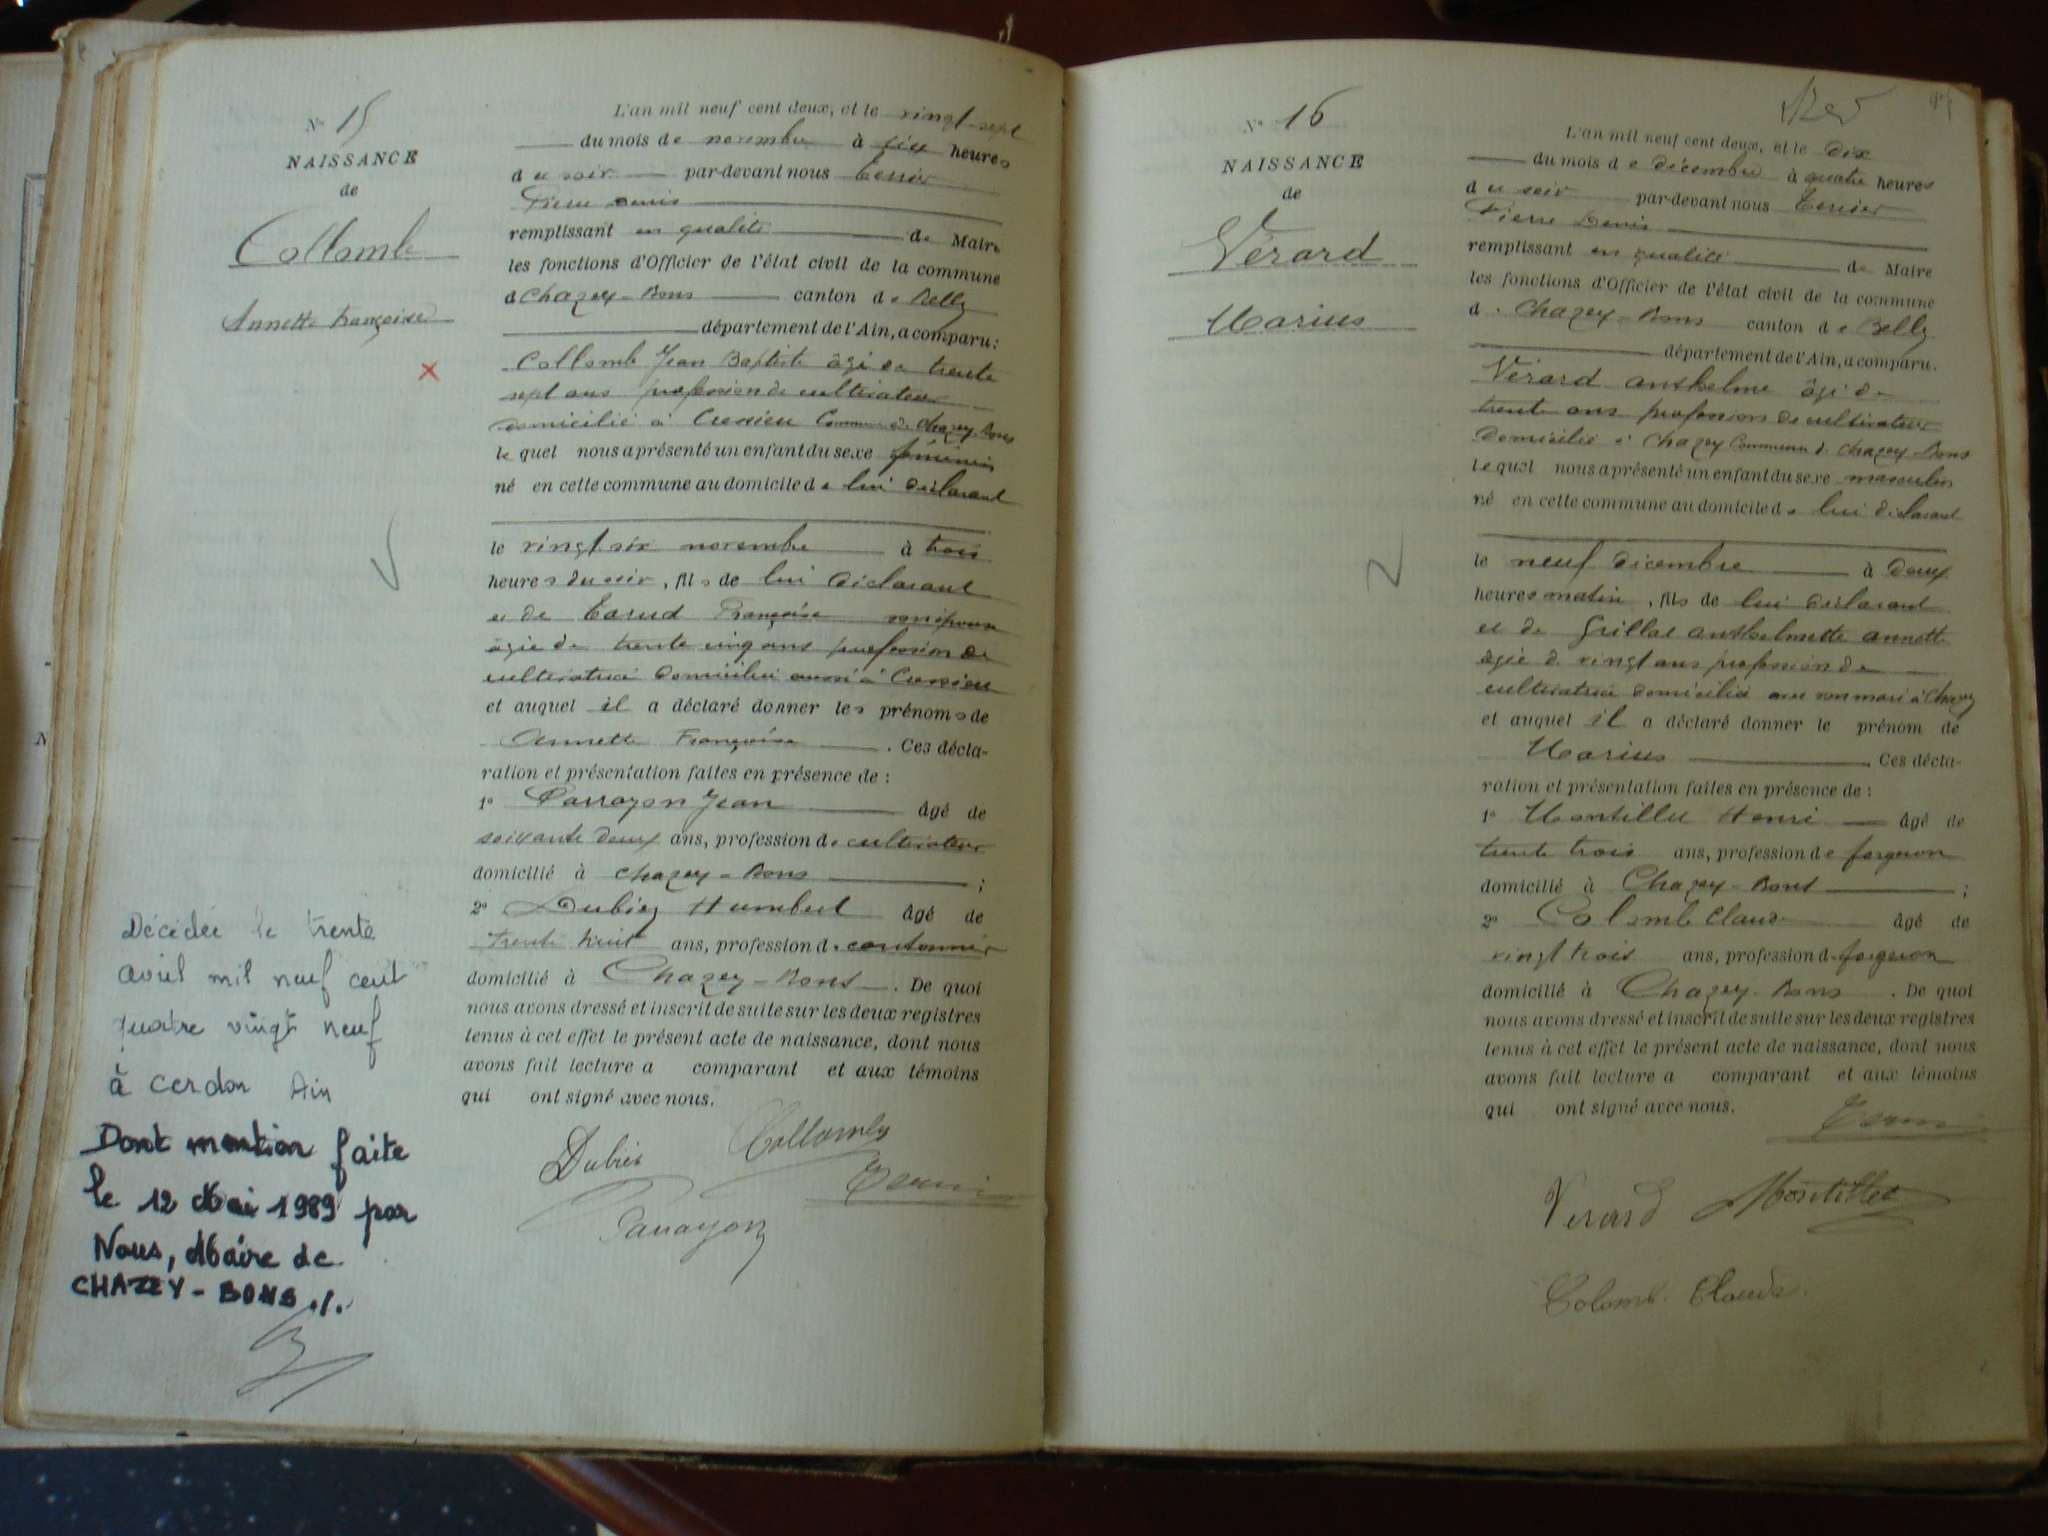 N° 15
NAISSANCE
de
Collomb
Annette Françoise
L'an mil neuf cent deux, et le vingt-sept
du mois de novembre à six heures
du soir par-devant nous Terrier
Pierre Denis
remplissant en qualité de Maire
les fonctions d'Officier de l'état civil de la commune
d Chazey-Bons canton de Belley
département de l'Ain, a comparu:
Collomb Jean Baptiste âgé de trente
sept ans profession de cultivateur
domicilié à Cressieu Commune de Chazey-Bons
lequel nous a présenté un enfant du sexe féminin
né en cette commune au domicile de lui déclarant
le vingt six novembre à trois
heures du soir, fils de lui déclarant
et de Françoise son épouse
âgée de trente cinq ans profession de
cultivatrice domiciliée aussi à Cressieu
et auquel il a déclaré donner les prénoms de
Annette Françoise. Ces décla-
ration et présentation faites en présence de :
1° Parrayon Jean âgé de
soixante deux ans, profession de cultivateur
domicilié à Chazey-Bons ;
2° Dubiez Humbert âgé de
trente huit ans, profession de cantonnier
domicilié à Chazey-Bons. De quoi
nous avons dressé et inscrit de suite sur les deux registres
tenus à cet effet le présent acte de naissance, dont nous
avons fait lecture a comparant et aux témoins
qui ont signé avec nous.
Dubiez Collomb
Terrier
Parrayon
Décédée le trente
avril mil neuf cent
quatre vingt neuf
à Cerdon Ain
Dont mention faite
le 12 Mai 1989 par
Nous, Maire de
CHAZEY-BONS ./.
N° 16
NAISSANCE
de
Vérard
Marius
L'an mil neuf cent deux, et le dix
du mois de décembre à quatre heures
du soir par-devant nous Terrier
Pierre Denis
remplissant en qualité de Maire
les fonctions d'Officier de l'état civil de la commune
d. Chazey-Bons canton de Belley
département de l'Ain, a comparu.
Vérard Anthelme âgé de
trente ans profession de cultivateur
domicilié à Chazey Commune de Chazey-Bons
lequel nous a présenté un enfant du sexe masculin
né en cette commune au domicile de lui déclarant
le neuf décembre à deux
heures matin, fils de lui déclarant
et de Grillet Anthelmette Annette
âgée de vingt ans profession de
cultivatrice domiciliée avec son mari à Chazey
et auquel il a déclaré donner le prénom de
Marius. Ces décla-
ration et présentation faites en présence de :
1° Montillet Henri âgé de
trente trois ans, profession de forgeron
domicilié à Chazey-Bons ;
2° Colomb Claude âgé de
vingt trois ans, profession de forgeron
domicilié à Chazey-Bons. De quoi
nous avons dressé et inscrit de suite sur les deux registres
tenus à cet effet le présent acte de naissance, dont nous
avons fait lecture a comparant et aux témoins
qui ont signé avec nous.
Terrier
Verard Montillet
Colomb Claude